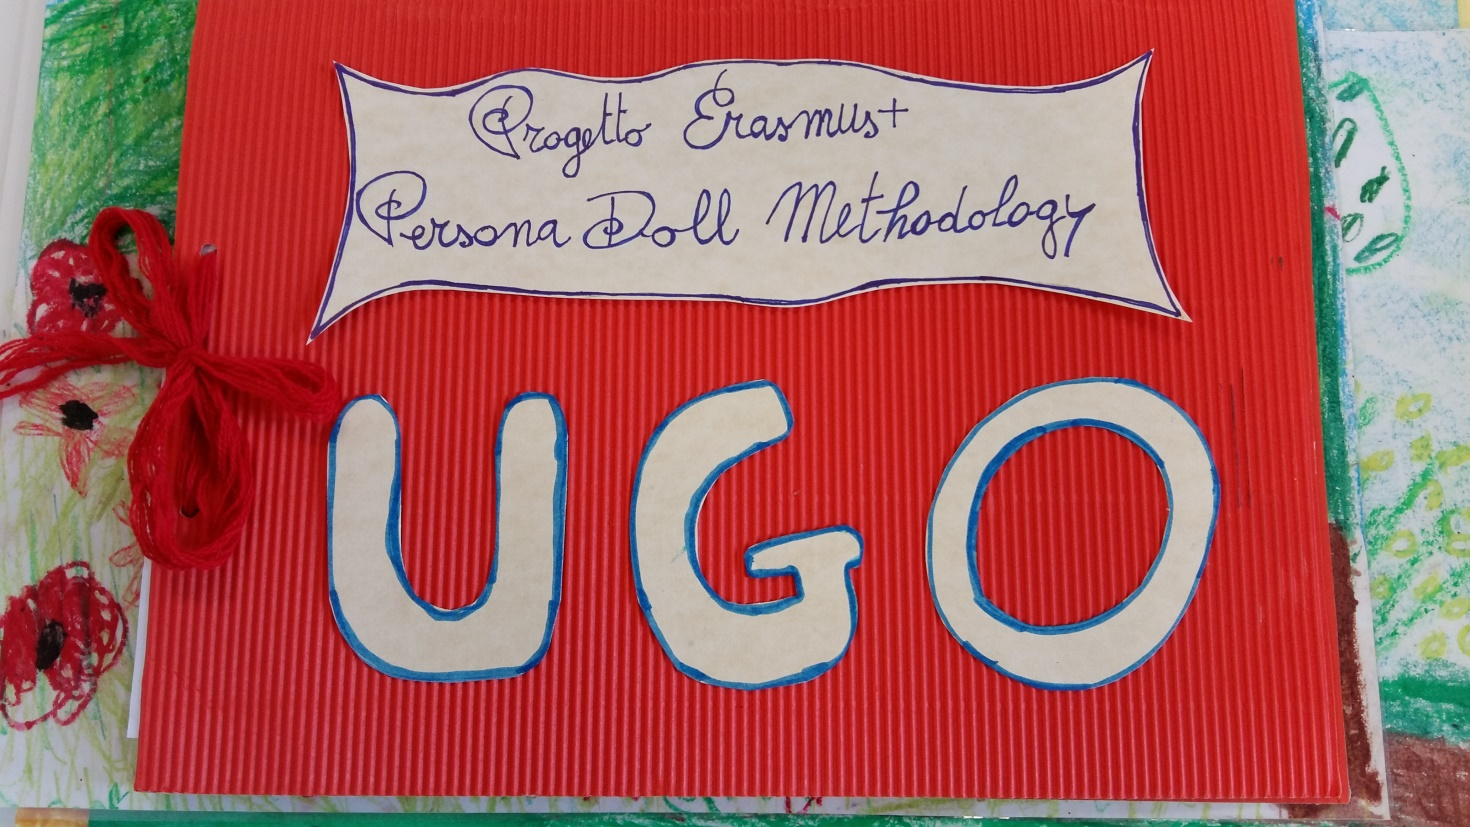 Progetto Erasmus+
Persona Doll Methodology
UGO